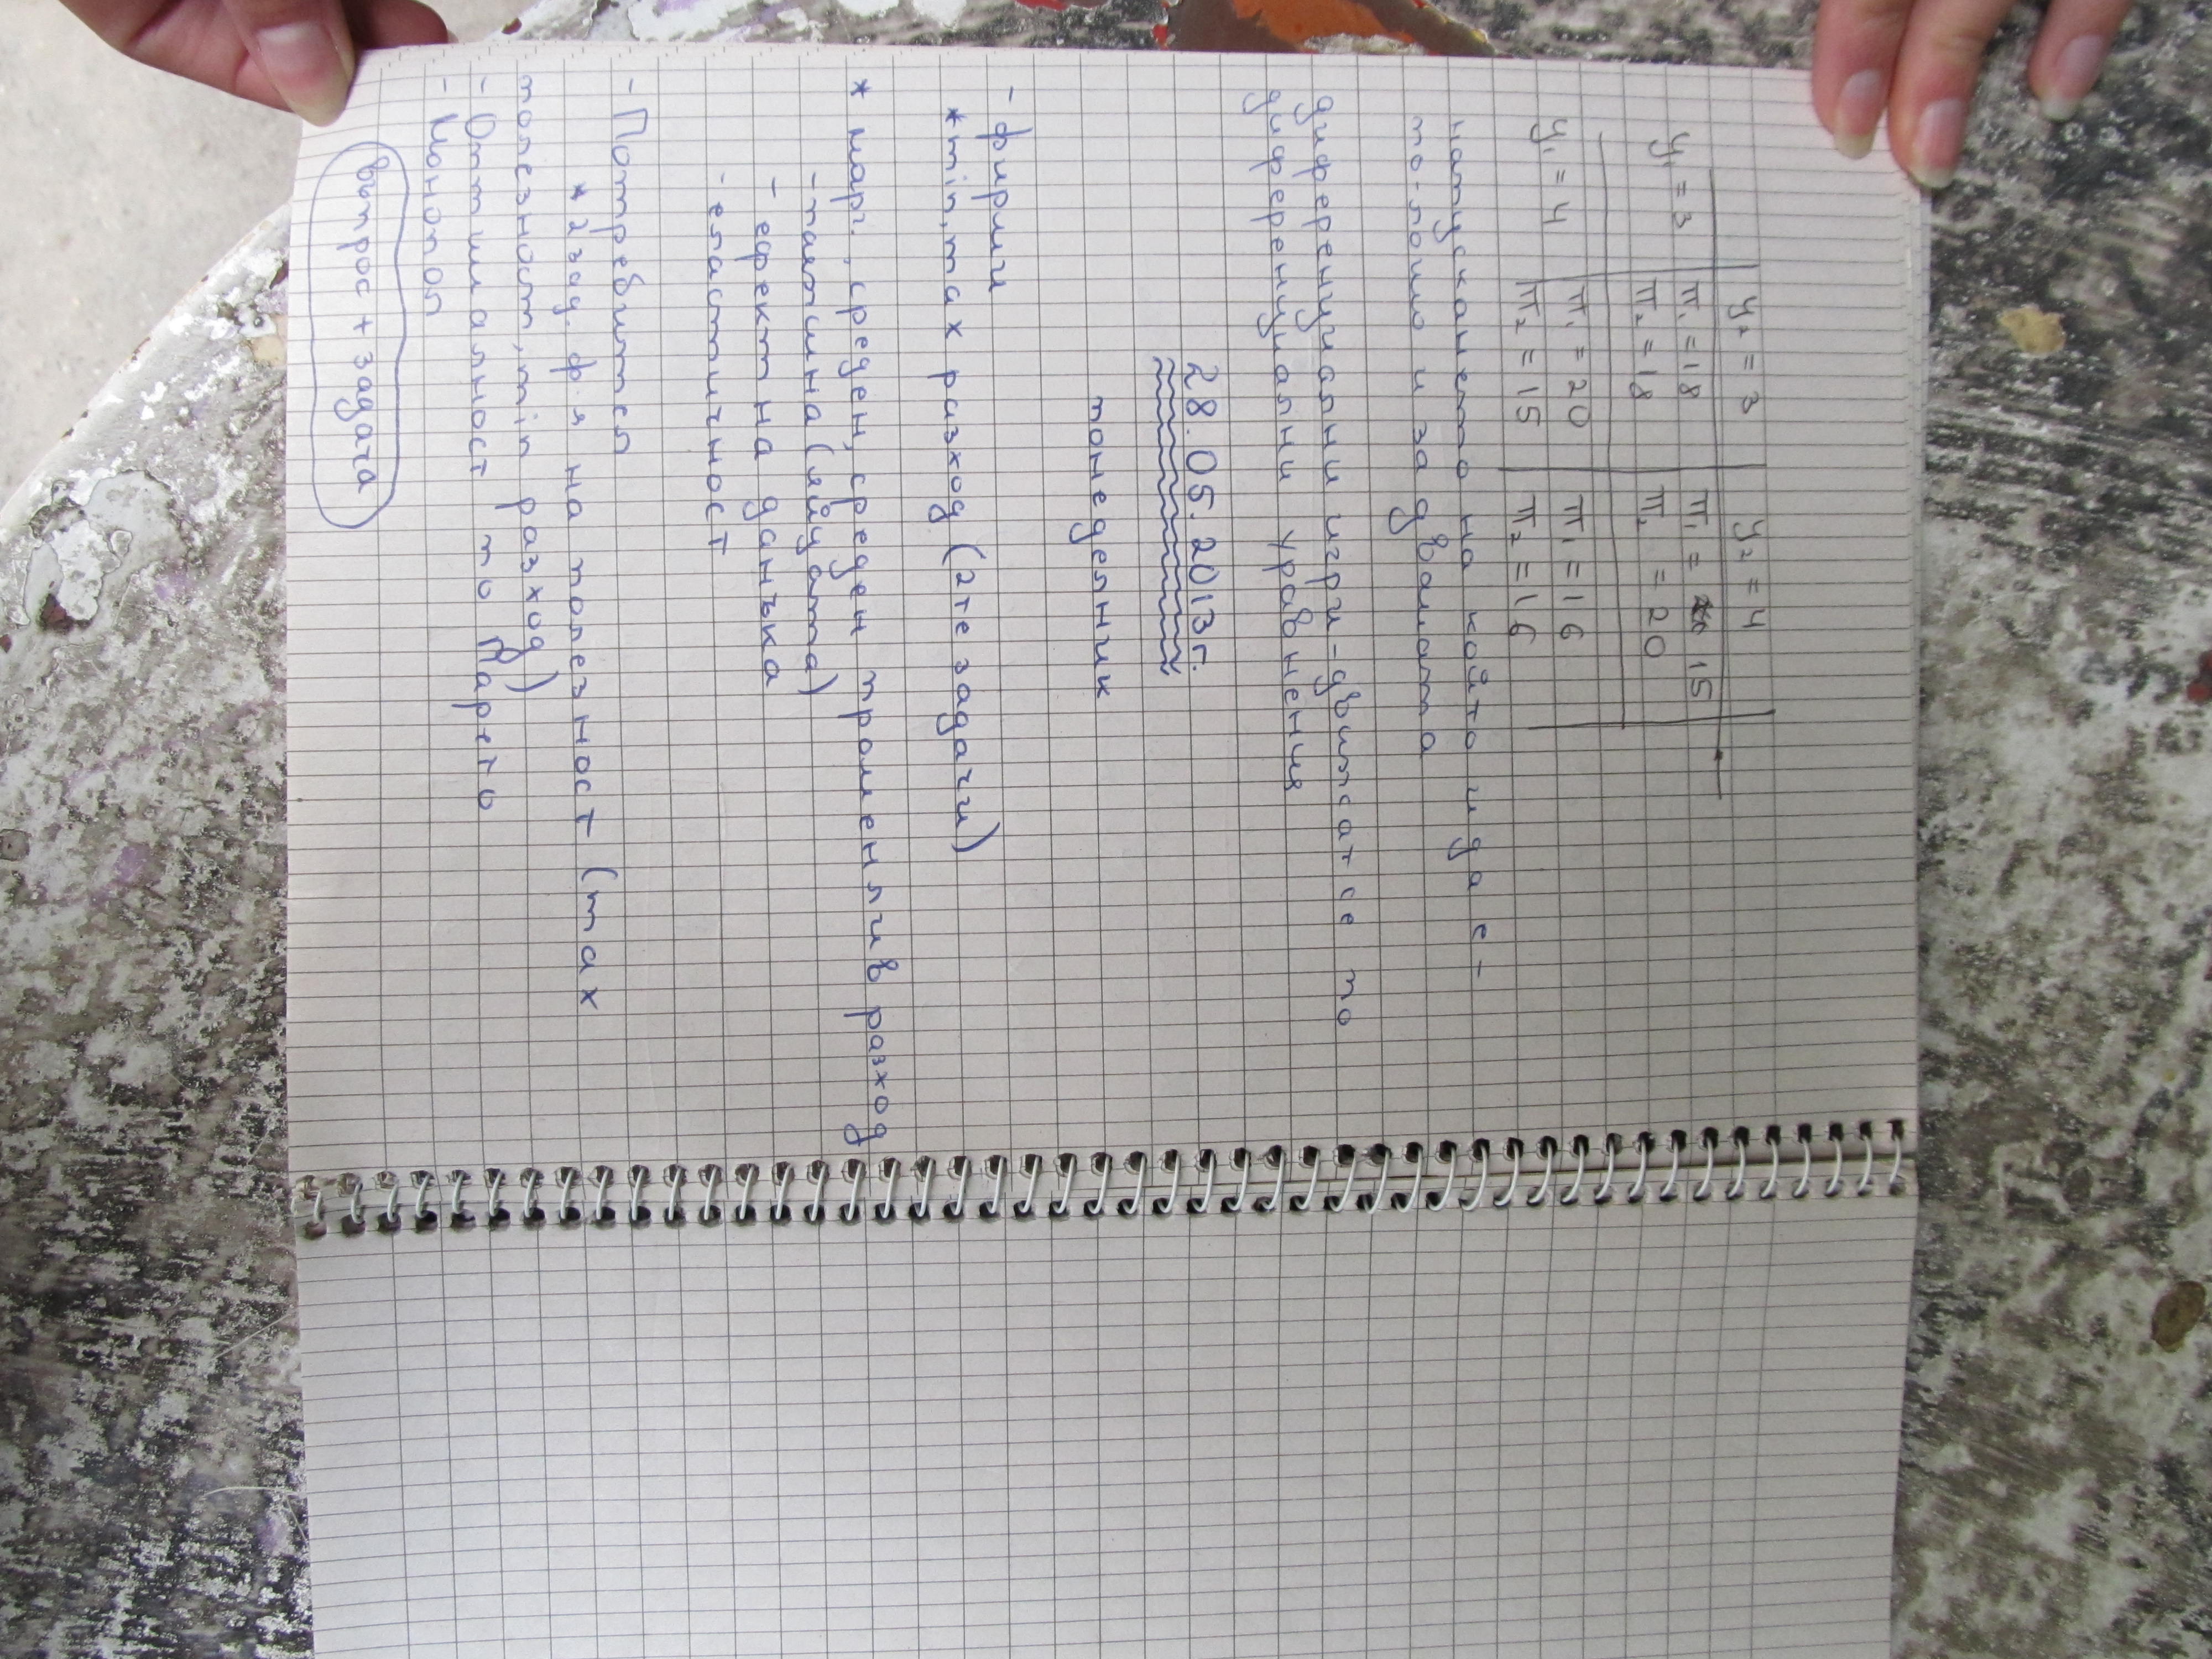 y₂ = 3 y₂ = 4
y₁ = 3 π₁ = 18 π₁ = 15
π₂ = 18 π₂ = 20
y₁ = 4 π₁ = 20 π₁ = 16
π₂ = 15 π₂ = 16
напускането на който и да е -
по-лошо и за двамата
диференциални игри - движат се по
диференциални уравнения
28.05.2013г.
понеделник
- фирми
* min, max разход (2те задачи)
* марг., среден, среден променлив разход
- паяжина (яйцата)
- ефект на данъка
- еластичност
- Потребител
* 2 зад. ф-я на полезност (max
полезност, min разход)
- Оптималност по Парето
- Монопол
въпрос + задача